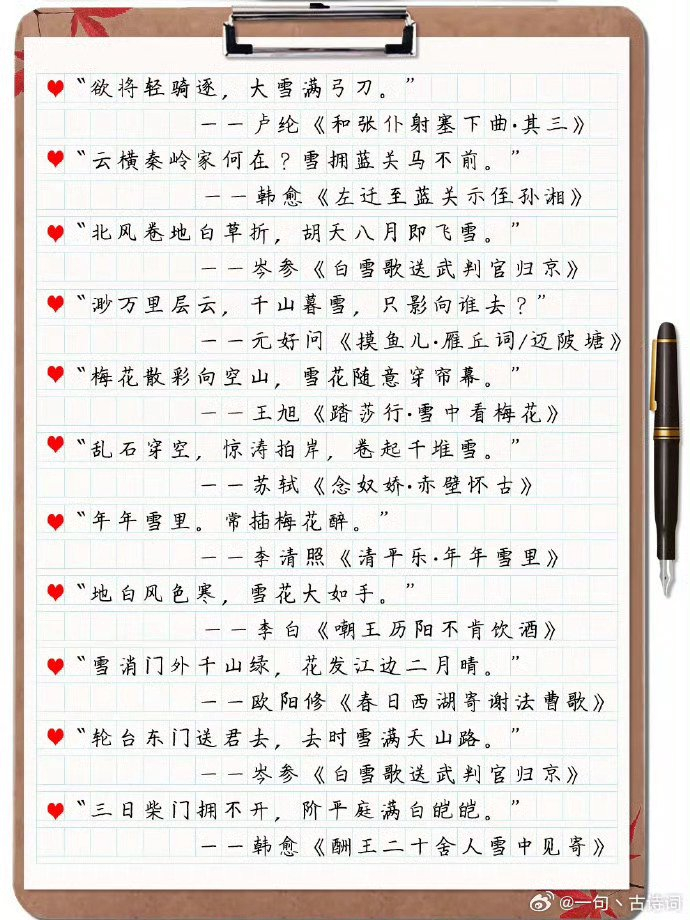 “欲将轻骑逐，大雪满弓刀。”
——卢纶《和张仆射塞下曲·其三》
“云横秦岭家何在？雪拥蓝关马不前。”
——韩愈《左迁至蓝关示侄孙湘》
“北风卷地白草折，胡天八月即飞雪。”
——岑参《白雪歌送武判官归京》
“渺万里层云，千山暮雪，只影向谁去？”
——元好问《摸鱼儿·雁丘词/迈陂塘》
“梅花散彩向空山，雪花随意穿帘幕。”
——王旭《踏莎行·雪中看梅花》
“乱石穿空，惊涛拍岸，卷起千堆雪。”
——苏轼《念奴娇·赤壁怀古》
“年年雪里。常插梅花醉。”
——李清照《清平乐·年年雪里》
“地白风色寒，雪花大如手。”
——李白《嘲王历阳不肯饮酒》
“雪消门外千山绿，花发江边二月晴。”
——欧阳修《春日西湖寄谢法曹歌》
“轮台东门送君去，去时雪满天山路。”
——岑参《白雪歌送武判官归京》
“三日柴门拥不开，阶平庭满白皑皑。”
——韩愈《酬王二十舍人雪中见寄》
@一句丶古诗词